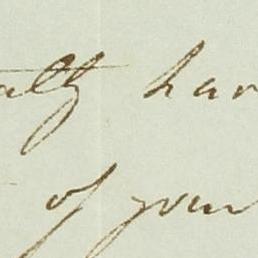 ally har
of your